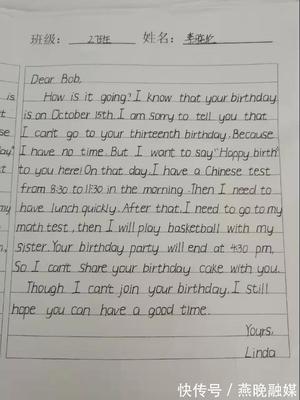 班级: 2班 姓名:
Dear Bob,
How is it going? I know that your birthday
is on October 15th. I am sorry to tell you that
I can't go to your thirteenth birthday. Because
I have no time. But I want to say "Happy birth"
to you here! On that day. I have a Chinese test
from 8:30 to 11:30 in the morning. Then I need to
have lunch quickly. After that. I need to go to my
math test, then I will play basketball with my
sister. Your birthday party will end at 4:30 pm,
So I can't share your birthday cake with you.
Though I can't join your birthday. I still
hope you can have a good time.
Yours,
Linda
is
t
se
day"
my
n,
快传号/燕晚融媒